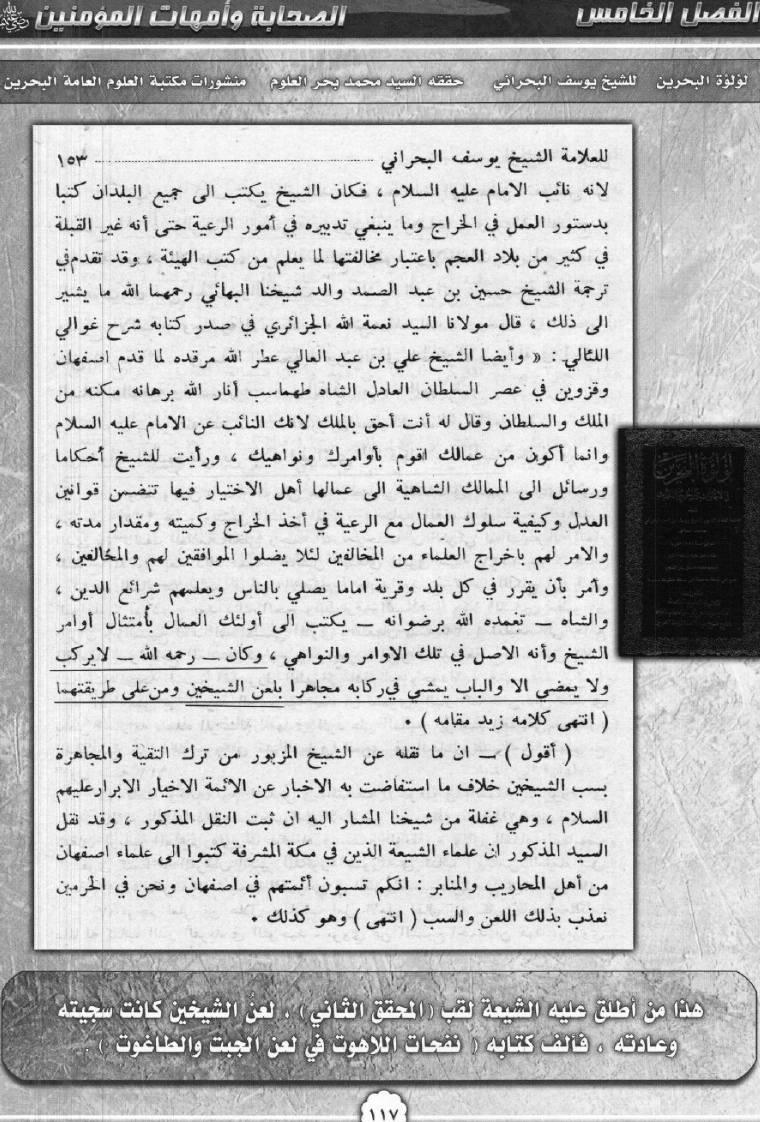 الفصل الخامس
الصحابة وأمهات المؤمنين
لؤلؤة البحرين للشيخ يوسف البحراني حققه السيد محمد بحر العلوم منشورات مكتبة العلوم العامة البحرين
للعلامة الشيخ يوسف البحراني ................ ١٥٣
لانه نائب الامام عليه السلام ، فكان الشيخ يكتب الى جميع البلدان كتبا
بدستور العمل في الخراج وما ينبغي تدبيره في أمور الرعية حتى أنه غير القبلة
في كثير من بلاد العجم باعتبار مخالفتها لما يعلم من كتب الهيئة ، وقد تقدم في
ترجمة الشيخ حسين بن عبد الصمد والد شيخنا البهائي رحمهما الله ما يشير
الى ذلك ، قال مولانا السيد نعمة الله الجزائري في صدر كتابه شرح غوالي
اللئالي : « وأيضا الشيخ علي بن عبد العالي عطر الله مرقده لما قدم اصفهان
وقزوين في عصر السلطان العادل الشاه طهماسب أنار الله برهانه مكنه من
الملك والسلطان وقال له أنت أحق بالملك لانك النائب عن الامام عليه السلام
وانما أكون من عمالك اقوم بأوامرك ونواهيك ، ورأيت للشيخ أحكاما
ورسائل الى الممالك الشاهية الى عمالها أهل الاختيار فيها تتضمن قوانين
العدل وكيفية سلوك العمال مع الرعية في أخذ الخراج وكميته ومقدار مدته ،
والامر لهم باخراج العلماء من المخالفين لئلا يضلوا الموافقين لهم والمخالفين ،
وأمر بأن يقرر في كل بلد وقرية اماما يصلي بالناس ويعلمهم شرائع الدين ،
والشاه ـ تغمده الله برضوانه ـ يكتب الى أولئك العمال بأمتثال أوامر
الشيخ وأنه الاصل في تلك الاوامر والنواهي ، وكان ـ رحمه الله ـ لايركب
ولا يمضي الا والباب يمشي في ركابه مجاهرا بلعن الشيخين ومن على طريقتهما
( انتهى كلامه زيد مقامه ) .
( أقول ) ـ ان ما نقله عن الشيخ المزبور من ترك التقية والمجاهرة
بسب الشيخين خلاف ما استفاضت به الاخبار عن الائمة الاخيار الابرار عليهم
السلام ، وهي غفلة من شيخنا المشار اليه ان ثبت النقل المذكور ، وقد نقل
السيد المذكور ان علماء الشيعة الذين في مكة المشرفة كتبوا الى علماء اصفهان
من أهل المحاريب والمنابر : انكم تسبون أئمتهم في اصفهان ونحن في الحرمين
نعذب بذلك اللعن والسب ( انتهى ) وهو كذلك .
لؤلؤة البحرين
هذا من أطلق عليه الشيعة لقب (المحقق الثاني) ، لعنُ الشيخين كانت سجيته
وعادته ، فألف كتابه ( نفحات اللاهوت في لعن الجبت والطاغوت ) .
١١٧